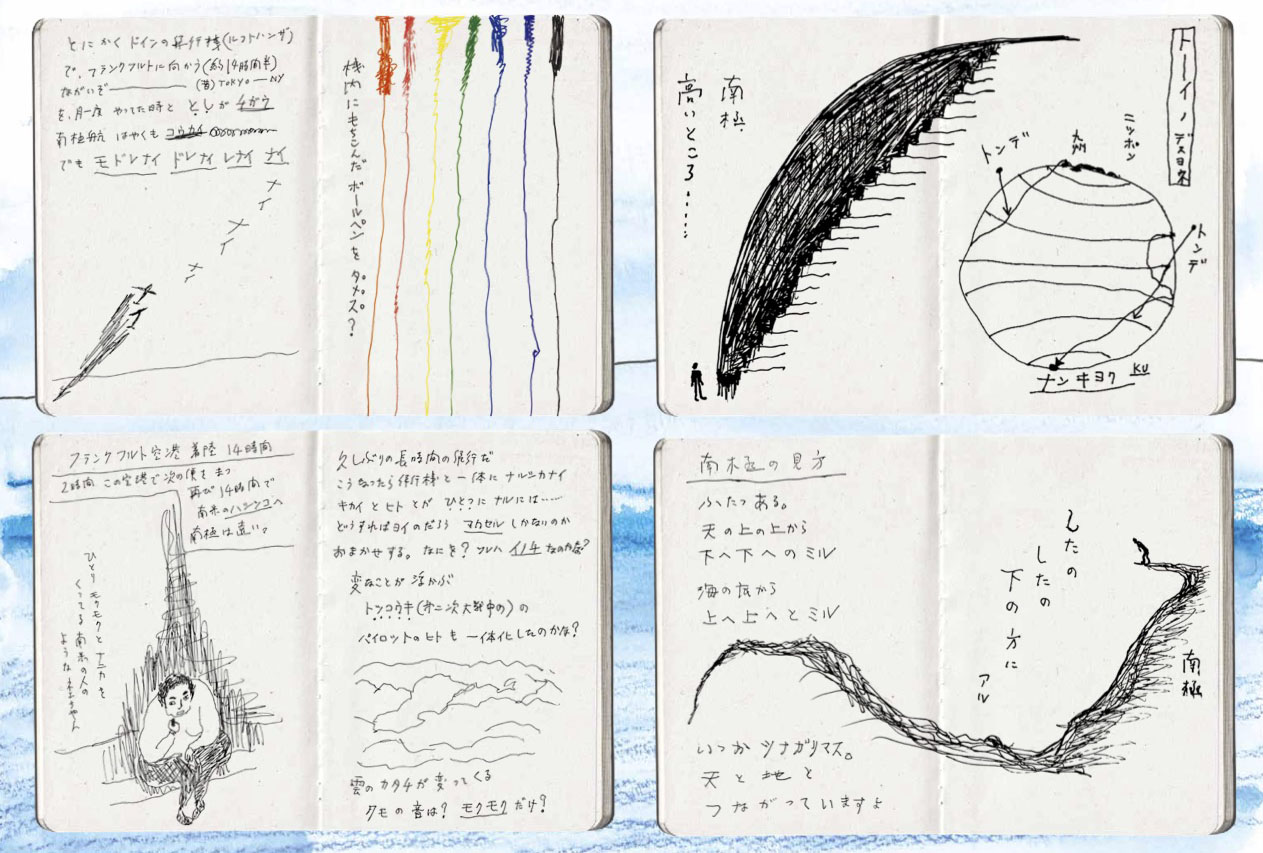 とにかく ドイツの飛行機(ルフトハンザ)
で、フランクフルトに向かう(約14時間半)
ながいぞ―――― (昔)TOKYO―NY
を、月一度 やってた時と としが チガウ
南極航 はやくも コウカイ
でも モドレナイ ドレナイ レナイ ナイ
機内にもちこんだ ボールペンを タメス?
トーイノデスヨネ
ニッポン
九州
トンデ
トンデ
ナンキョク KU
南極
高いところ・・・・・・
フランクフルト空港 着陸 14時間
2時間 この空港で次の便を まつ
再び 14時間で
南米のハジッコへ
南極は遠い。
ひとり モクモクと ナニカを
くってる 南米の人の
ような
久しぶりの長時間の飛行だ
こうなったら飛行機と一体にナルシカナイ
キカイとヒトとが ひとつにナルには……
どうすればヨイのだろう マカセル しかないのか
おまかせする。なにを? ソレハ イノチ なのか森?
変なことが 浮かぶ
トッコウキ(第二次大戦中の)の
パイロットのヒトも 一体化したのかな?
雲のカタチが変ってくる
クモの音は? モクモクだけ?
南極の見方
ふたつ ある。
天の上の上から
下へ下へのミル
海の底から
上へ上へとミル
したの
したの
下の方に
アル
南極
いつか ツナガリマス。
天と地と
つながっていますよ